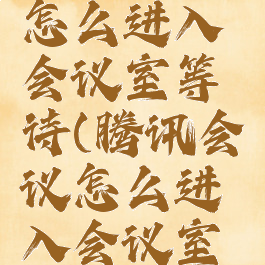 怎么进入
会议室等
诗(腾讯会
议怎么进
入会议室